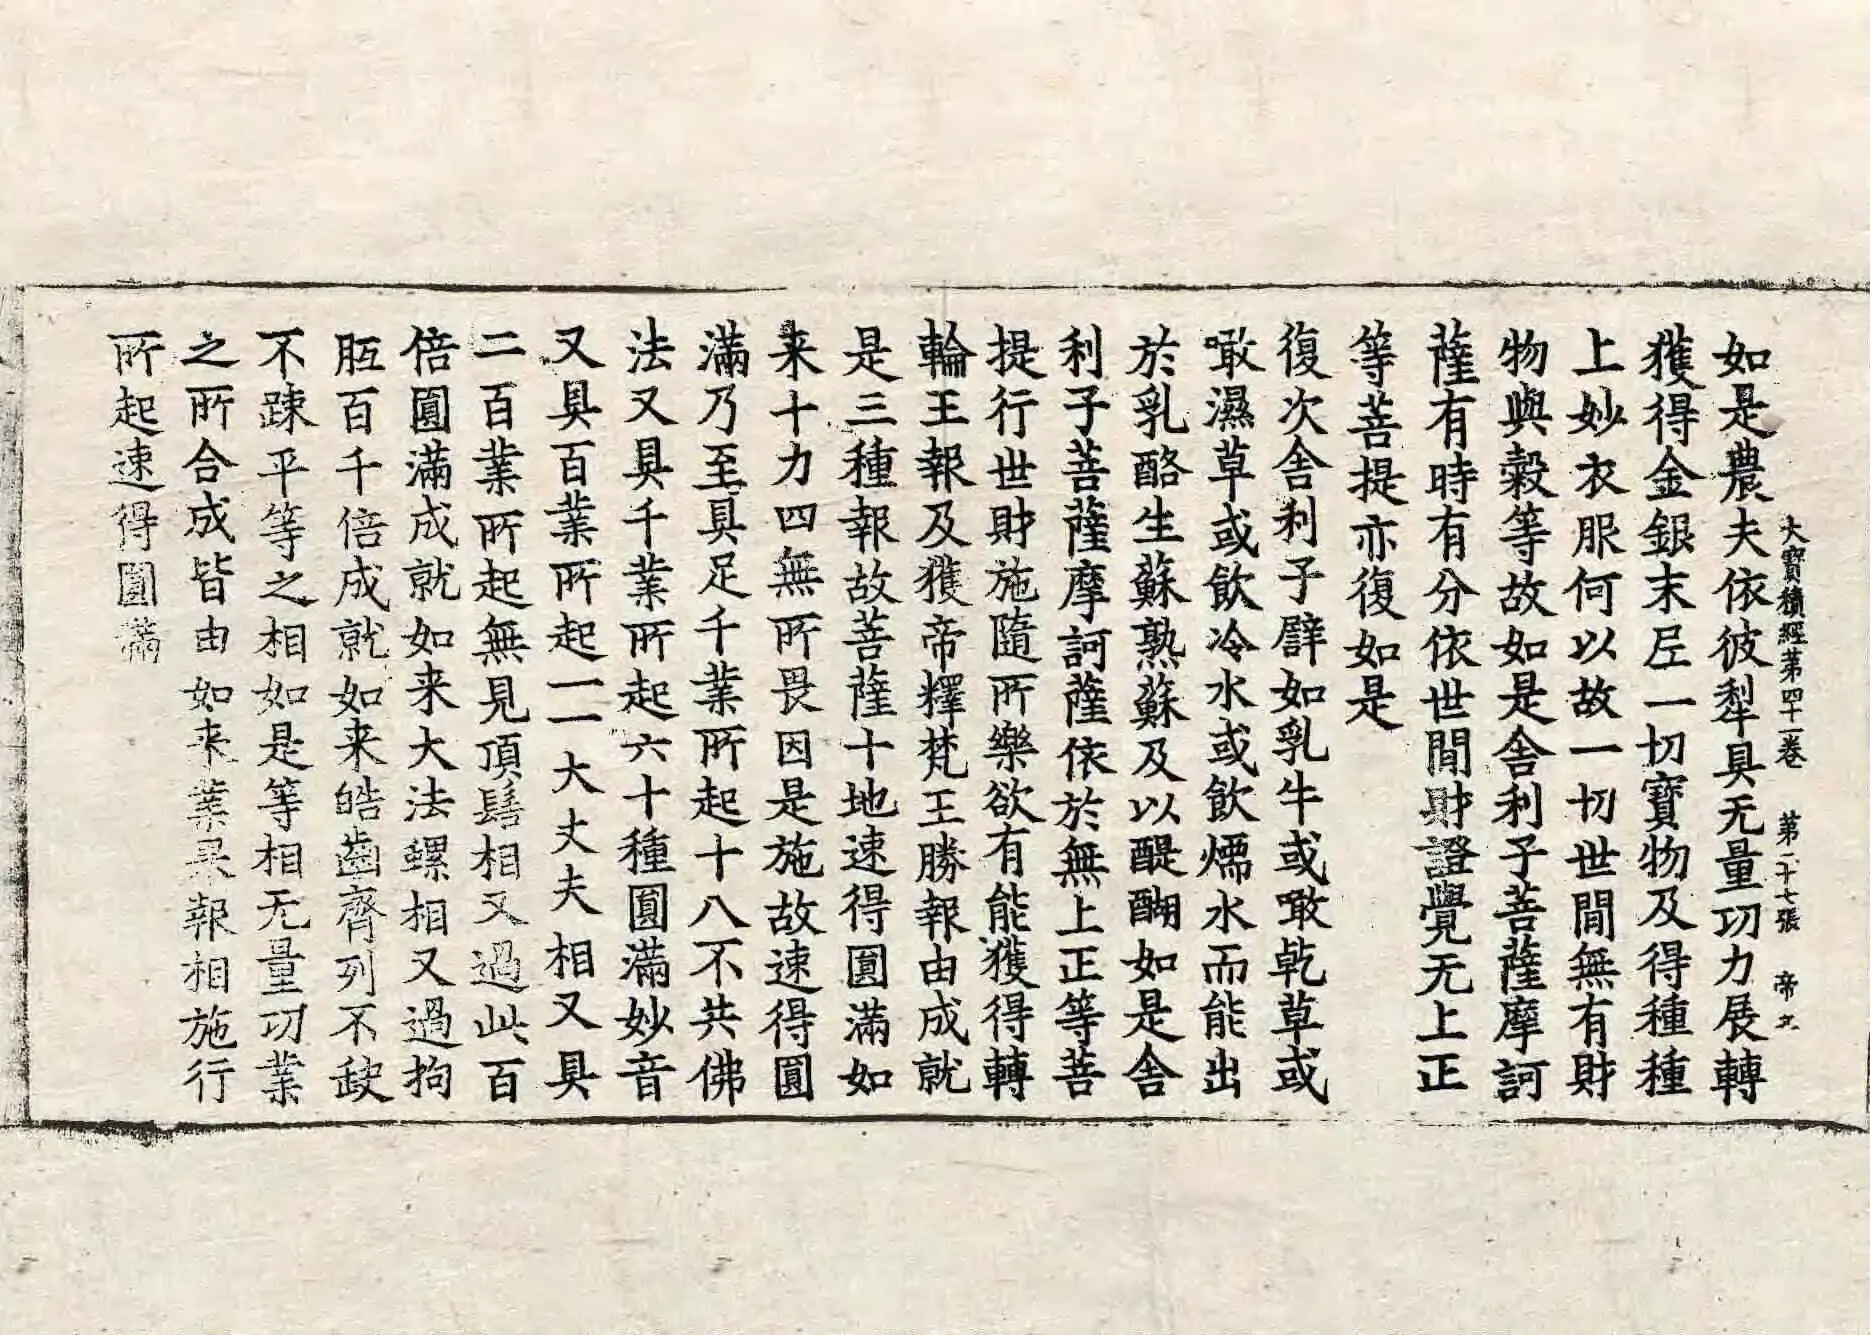 大寶積經第四十一卷　第二十七張　帝九
如是農夫依彼犁具无量功力展轉
獲得金銀末尼一切寶物及得種種
上妙衣服何以故一切世間無有財
物與穀等故如是舍利子菩薩摩訶
薩有時有分依世間財證覺无上正
等菩提亦復如是
復次舍利子譬如乳牛或噉乾草或
噉濕草或飲冷水或飲煗水而能出
於乳酪生蘇熟蘇及以醍醐如是舍
利子菩薩摩訶薩依於無上正等菩
提行世財施隨所樂欲有能獲得轉
輪王報及獲帝釋梵王勝報由成就
是三種報故菩薩十地速得圓滿如
来十力四無所畏因是施故速得圓
滿乃至具足千業所起十八不共佛
法又具千業所起六十種圓滿妙音
又具百業所起一一大丈夫相又具
二百業所起無見頂髻相又過此百
倍圓滿成就如来大法螺相又過拘
胝百千倍成就如来皓齒齊列不缺
不踈平等之相如是等相无量功業
之所合成皆由如来業果報相施行
所起速得圓滿